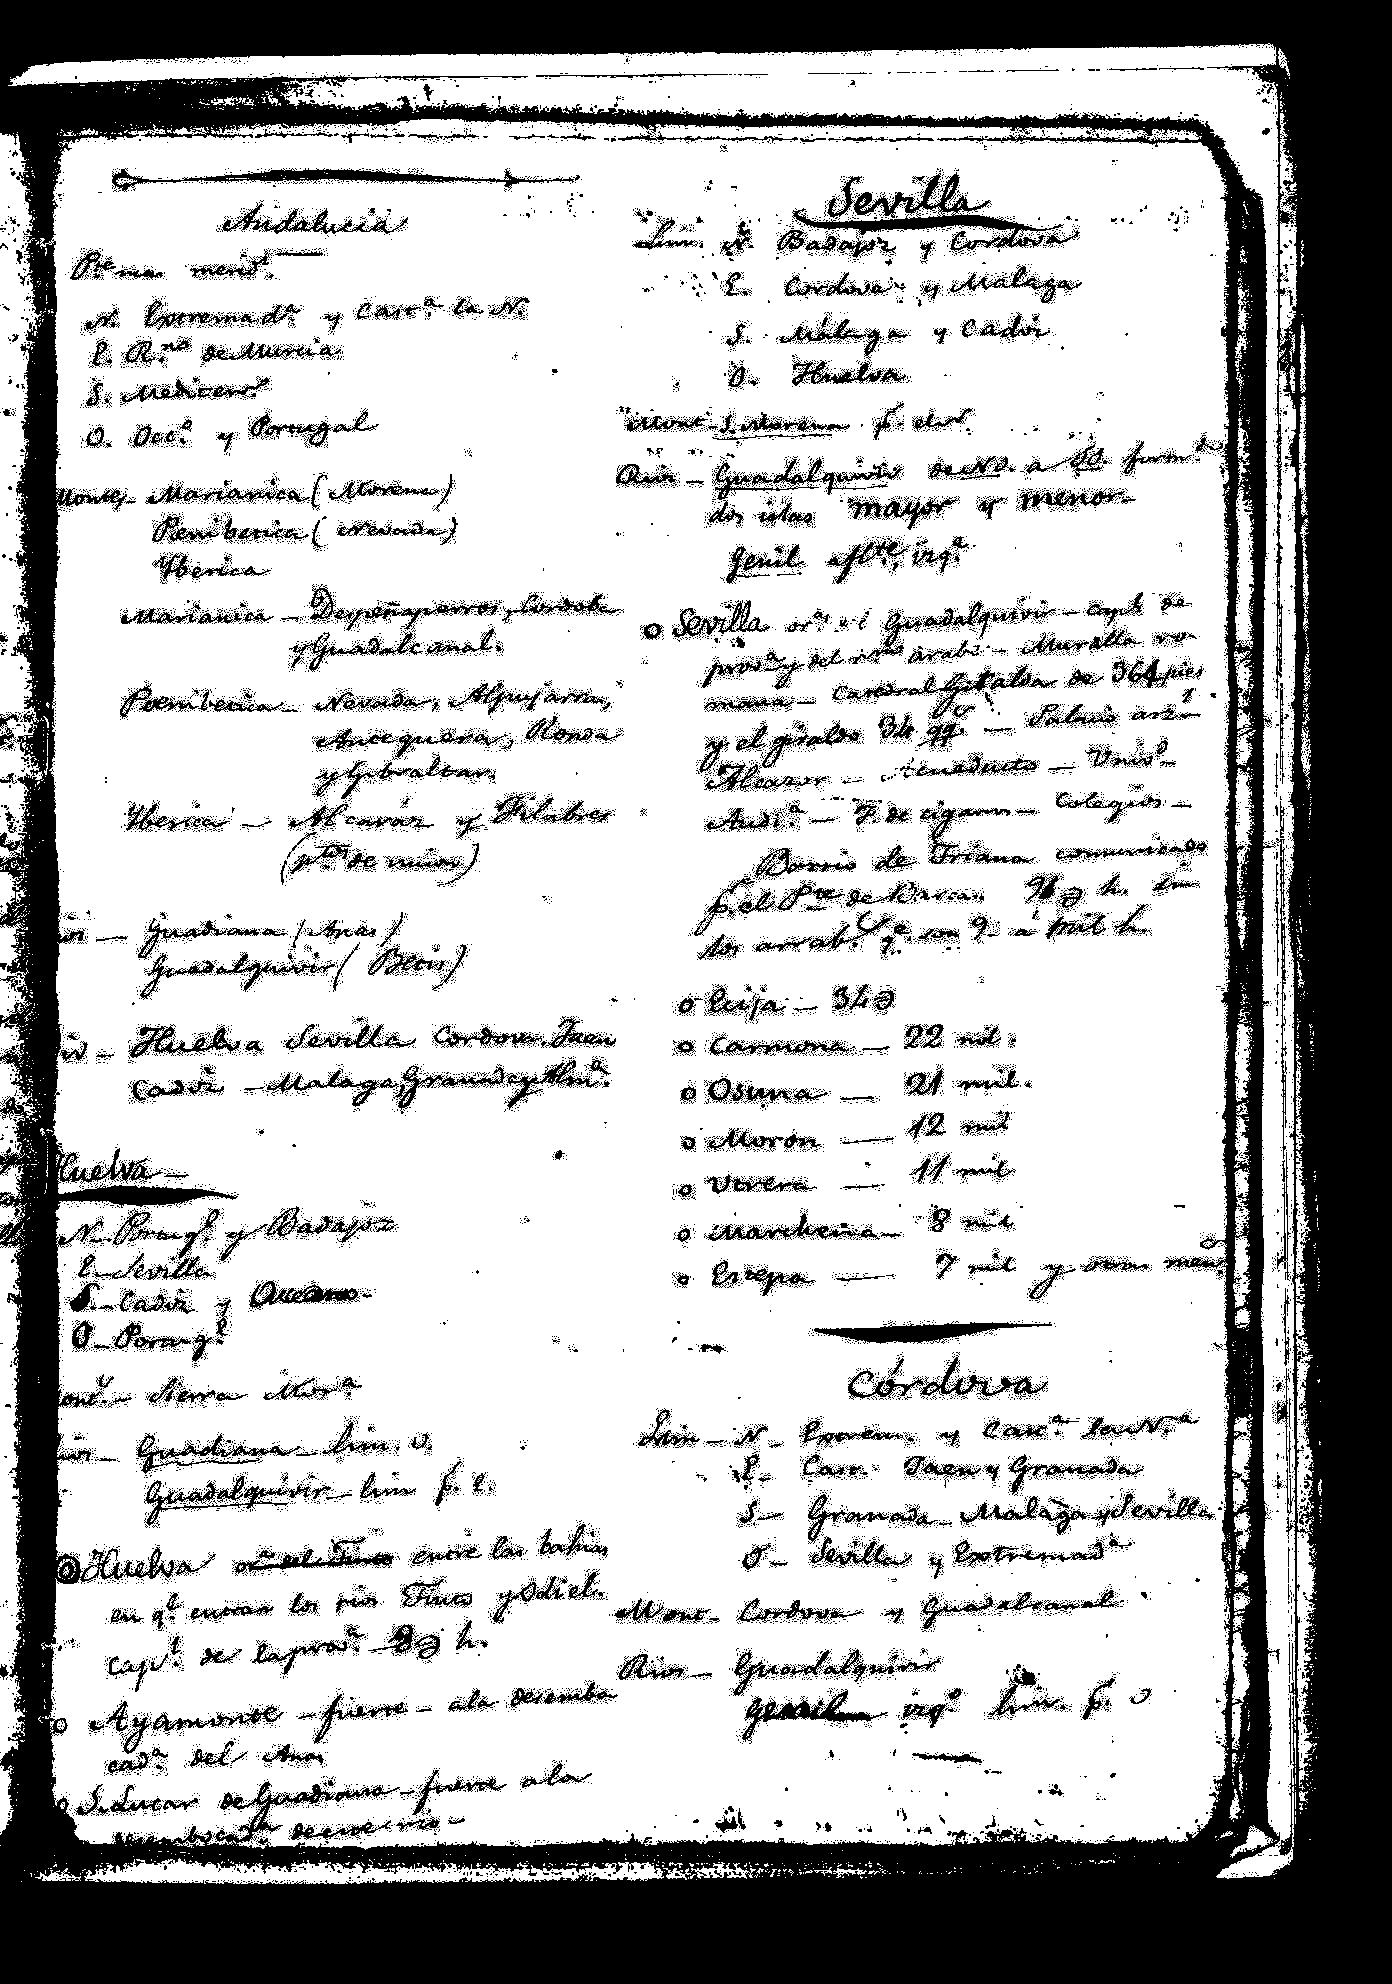 Andalucia
Pte ma merid.l
N. Extremad.a y Cast.a la N.
E. R.no de Murcia
S. Mediterr.o
O. Occ.o y Portugal
Monte - Marianica (Morena)
Penibetica (Nevada)
Yberica
Marianica - Despeñaperros, Cordoba
y Guadalcanal.
Penibetica - Nevada, Alpujarras,
Antequera, Ronda
y Gibraltar
Yberica - Alcaráz y Filabres
(ptos de minas)
Guadiana (Anas)
Guadalquivir (Betis)
Huelva Sevilla Cordova Jaen
Cadiz - Malaga Granada y Alm.a
Huelva -
N - Portug.l y Badajoz
E - Sevilla
S. - Cadiz y Oceano -
O - Portug.l
Sierra Mor.a
Guadiana - lim. O.
Guadalquivir - lim p. E.
Huelva entre las bahias
en q.e entran los rios Tinto y Odiel.
Cap.l de la prov.a - 8 h.
o Ayamonte - fuerte - a la desembo
cad.a del Anas
o S. Lucar de Guadiana - fuerte a la
desembocad.a de este rio -
Sevilla
Lim. N. Badajoz y Cordova
E. Cordova y Malaga
S. Málaga y Cadiz
O. Huelva
Mont - S. Morena p. el N.
Rios - Guadalquivir de NO. a SO. form.do
dos islas mayor y menor -
Genil afl.te izq.a
o Sevilla or.a el Guadalquivir - capl. de
prov.a y del rno arab. - Muralla ro
mana - Catedral Giralda de 364 pies
y el giraldo 34 qq.s - Palacio arz.l
Alcazar - Acueducto - Univ.d -
Audi.a - F. de cigarros - Colegios -
Barrio de Triana comunicado
p. el Pte de Barcas. 96 h.
los arrab.s q.e son 9 á mil h.
o Ecija - 34
o Carmona - 22 mil.
o Osuna - 21 mil.
o Morón - 12 mil
o Utrera - 11 mil
o Marchena - 8 mil
o Estepa - 7 mil y otras men.s
Córdova
Lim - N - Extrem. y Cast.a la N.a
E - Cast. Jaen y Granada
S - Granada - Malaga y Sevilla
O - Sevilla y Extremad.a
Mont - Cordova y Guadalcanal
Rios - Guadalquivir
Genil izq.a lim. p. O